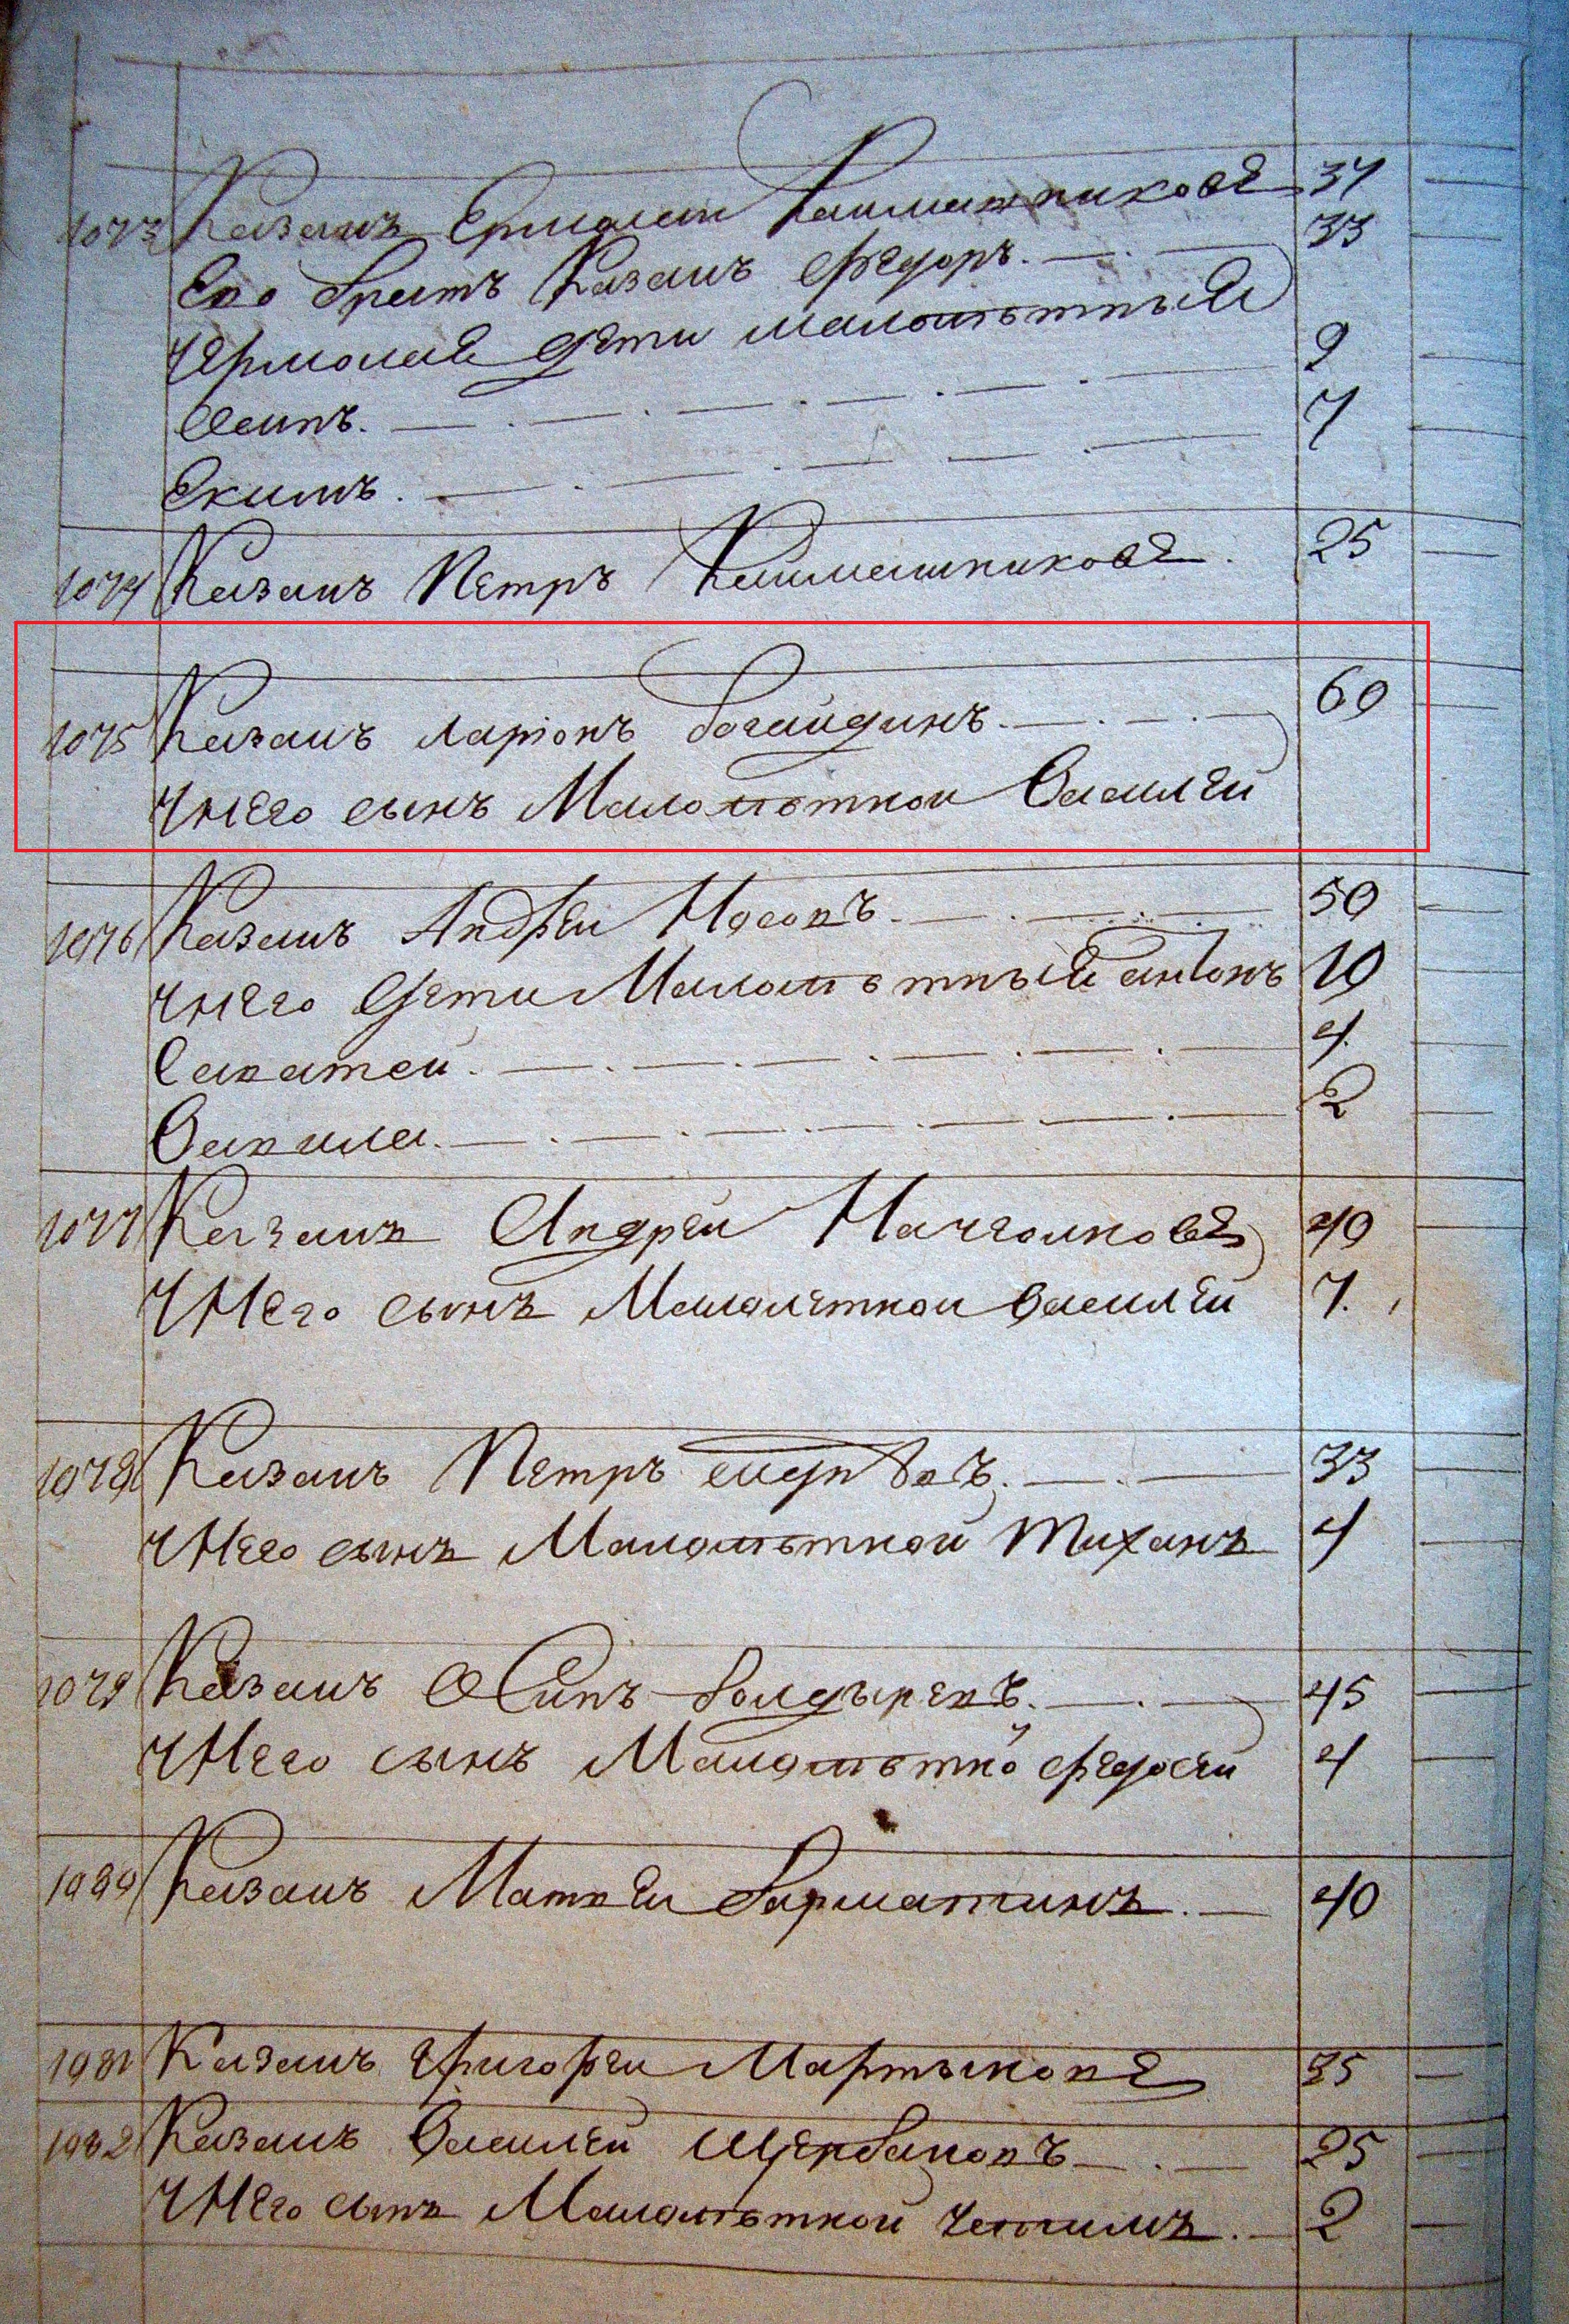 1073 Казакъ Ермолаи Калмыковъ 37
Его братъ Казакъ Федоръ. 33
У Ермолаѣ дѣти малолѣтныѣ
Осипъ. 9
Екимъ. 7
1074 Казакъ Петръ 25
1075 Казакъ Ларіонъ богайдинъ. 60
У него сынъ Малолѣтнои Василеи
1076 Казакъ Андрѣи Носовъ. 50
У него дѣти Малолѣтныѣ антонъ 10
Саватеи. 4.
Вавила. 2
1077 Казакъ Андреи 40
У Него сынъ Малолетнои Василеи 7.
1078 Казакъ Петръ 33
У Него сынъ Малолѣтнои Тиханъ 4
1079 Казакъ Осипъ болдыревъ. 45
У Него сынъ Малолѣтнои Федосеи 4
1080 Казакъ Матвеи 40
1081 Казакъ Григореи Мартыновъ 35
1082 Казакъ Василеи Щербаковъ 25
У Него сынъ Малолѣтнои 2